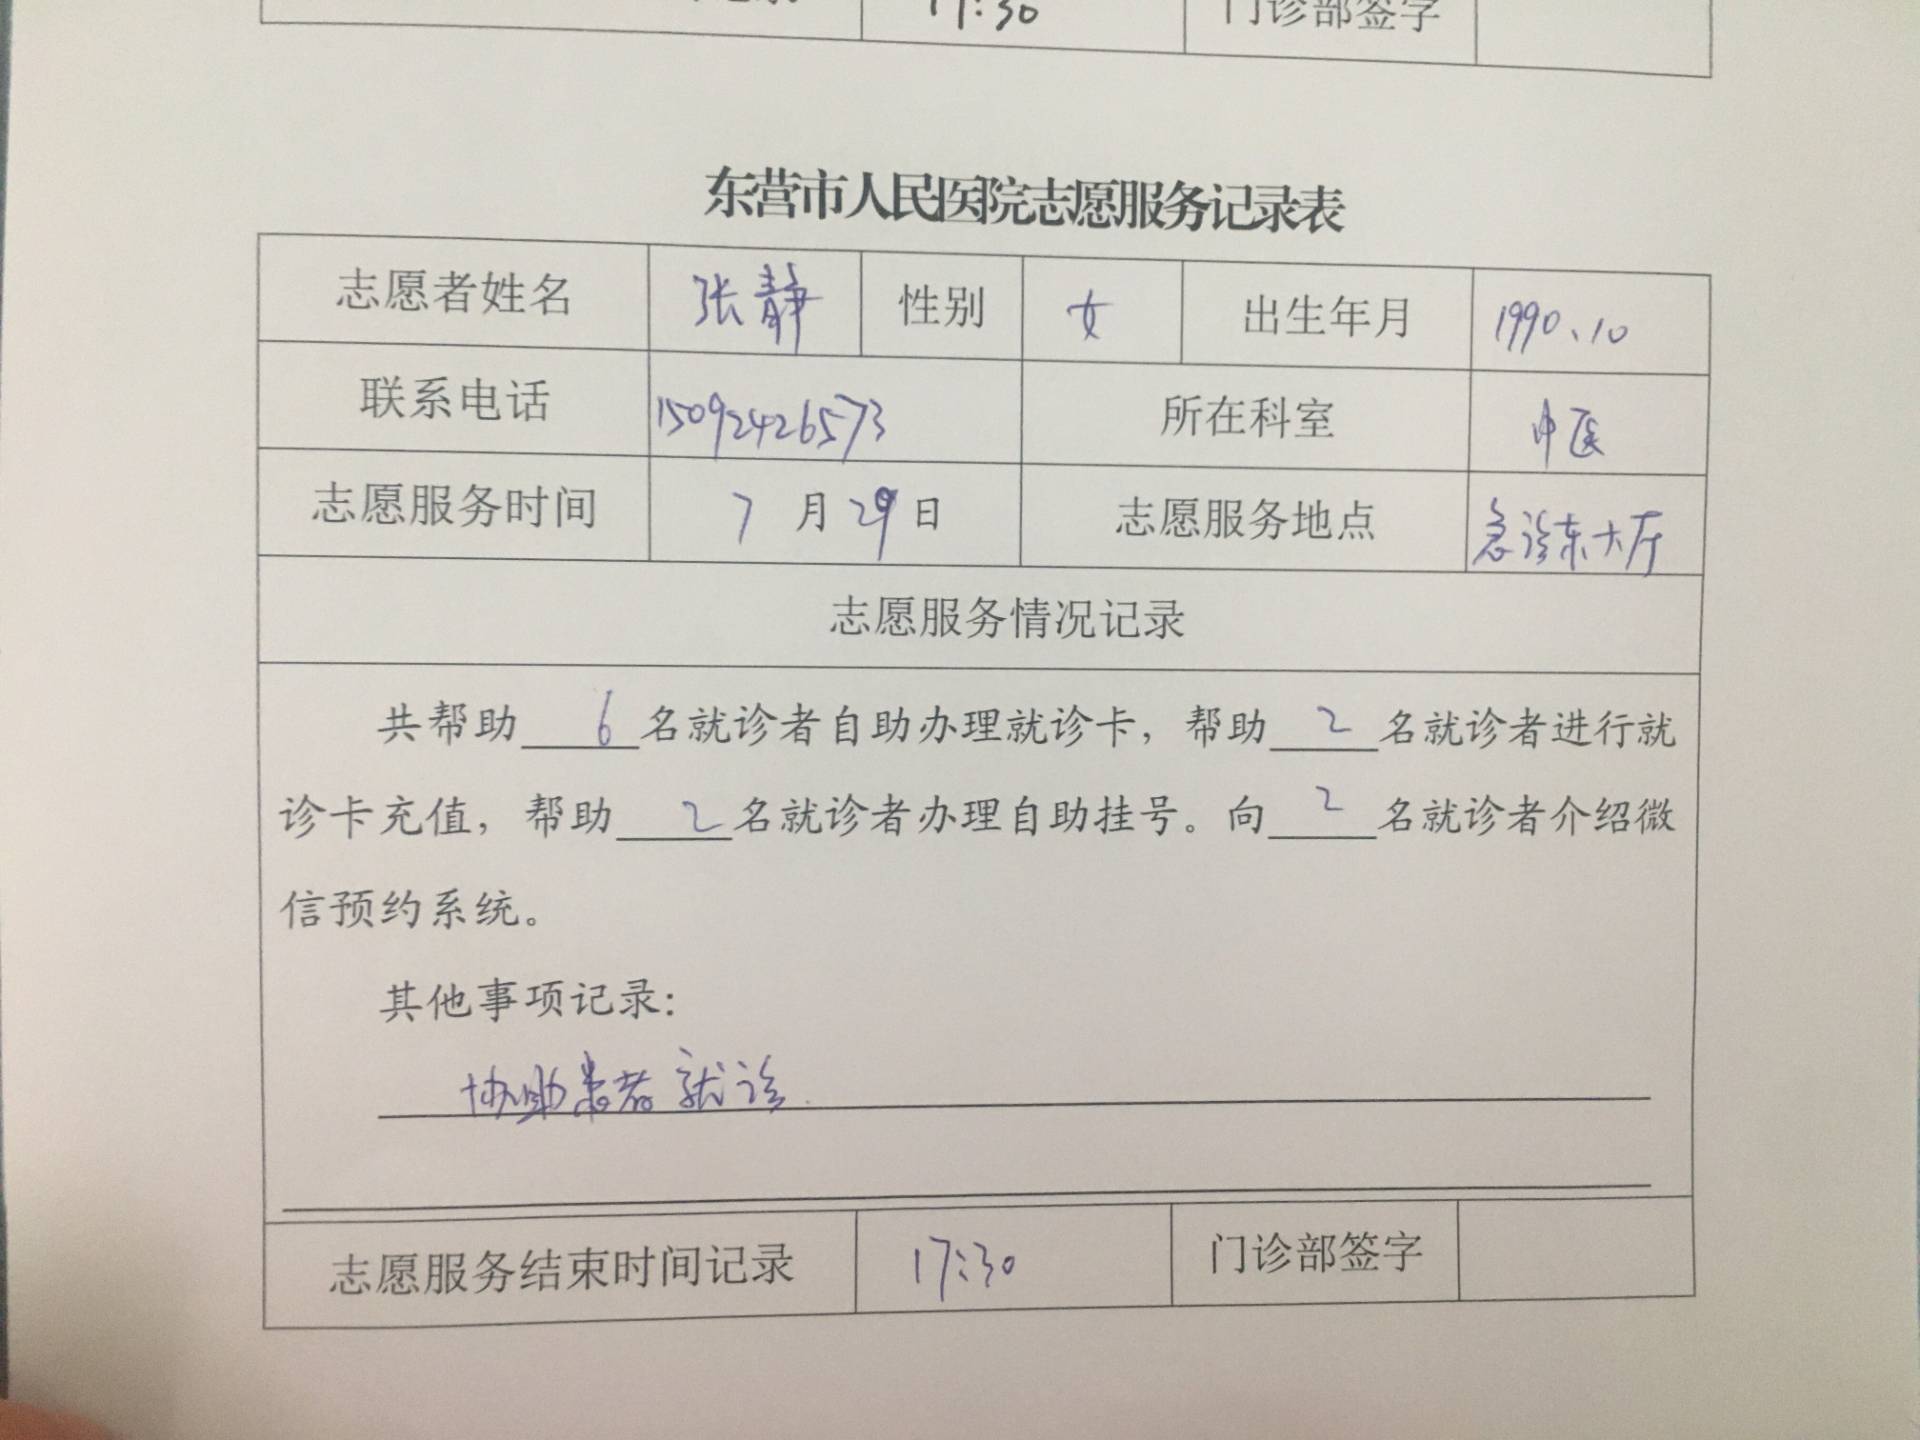 17:30 门诊部签字
东营市人民医院志愿服务记录表
志愿者姓名 张静 性别 女 出生年月 1990、10
联系电话 15092426573 所在科室 中医
志愿服务时间 7 月 29 日 志愿服务地点 急诊东大厅
志愿服务情况记录
共帮助 6 名就诊者自助办理就诊卡，帮助 2 名就诊者进行就
诊卡充值，帮助 2 名就诊者办理自助挂号。向 2 名就诊者介绍微
信预约系统。
其他事项记录：
协助患者就诊.
志愿服务结束时间记录 17:30 门诊部签字